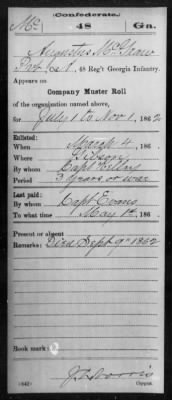 (Confederate.)
Mc 48 Ga.
Augustus McGraw
Pvt, Co. 48 Reg't Georgia Infantry.
Appears on
Company Muster Roll
of the organization named above,
for July 1 to Nov 1, 1862
Enlisted:
When March 4, 186
Where Gibson
By whom Capt
Period 3 years or war
Last paid:
By whom Capt Evans
To what time May 1st, 186
Present or absent
Remarks: Died Sept 9th 1862
Book mark:
(642) Copyist.